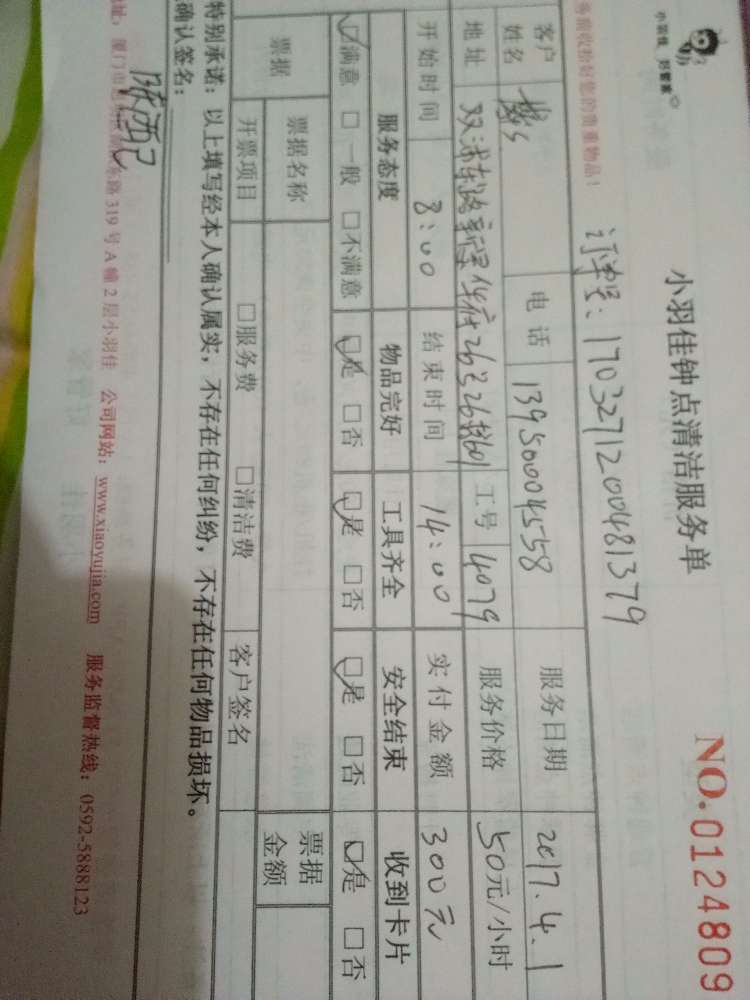 小羽佳 好管家
小羽佳钟点清洁服务单
NO.0124809
前收拾好您的贵重物品！
订单号：170327120048 1379
客户姓名 电话 13950004558 服务日期 2017.4.1
地址 工号 4079 服务价格 50元/小时
开始时间 8:00 结束时间 14:00 实付金额 300元
服务态度 物品完好 工具齐全 安全结束 收到卡片
☑满意 □一般 □不满意 ☑是 □否 ☑是 □否 ☑是 □否 ☑是 □否
票据 票据名称 票据金额
开票项目 □服务费 □清洁费 客户签名
特别承诺：以上填写经本人确认属实，不存在任何纠纷，不存在任何物品损坏。
确认签名：
址：厦门市 东路319号A幢2层小羽佳 公司网站：www.xiaoyujia.com 服务监督热线：0592-5888123